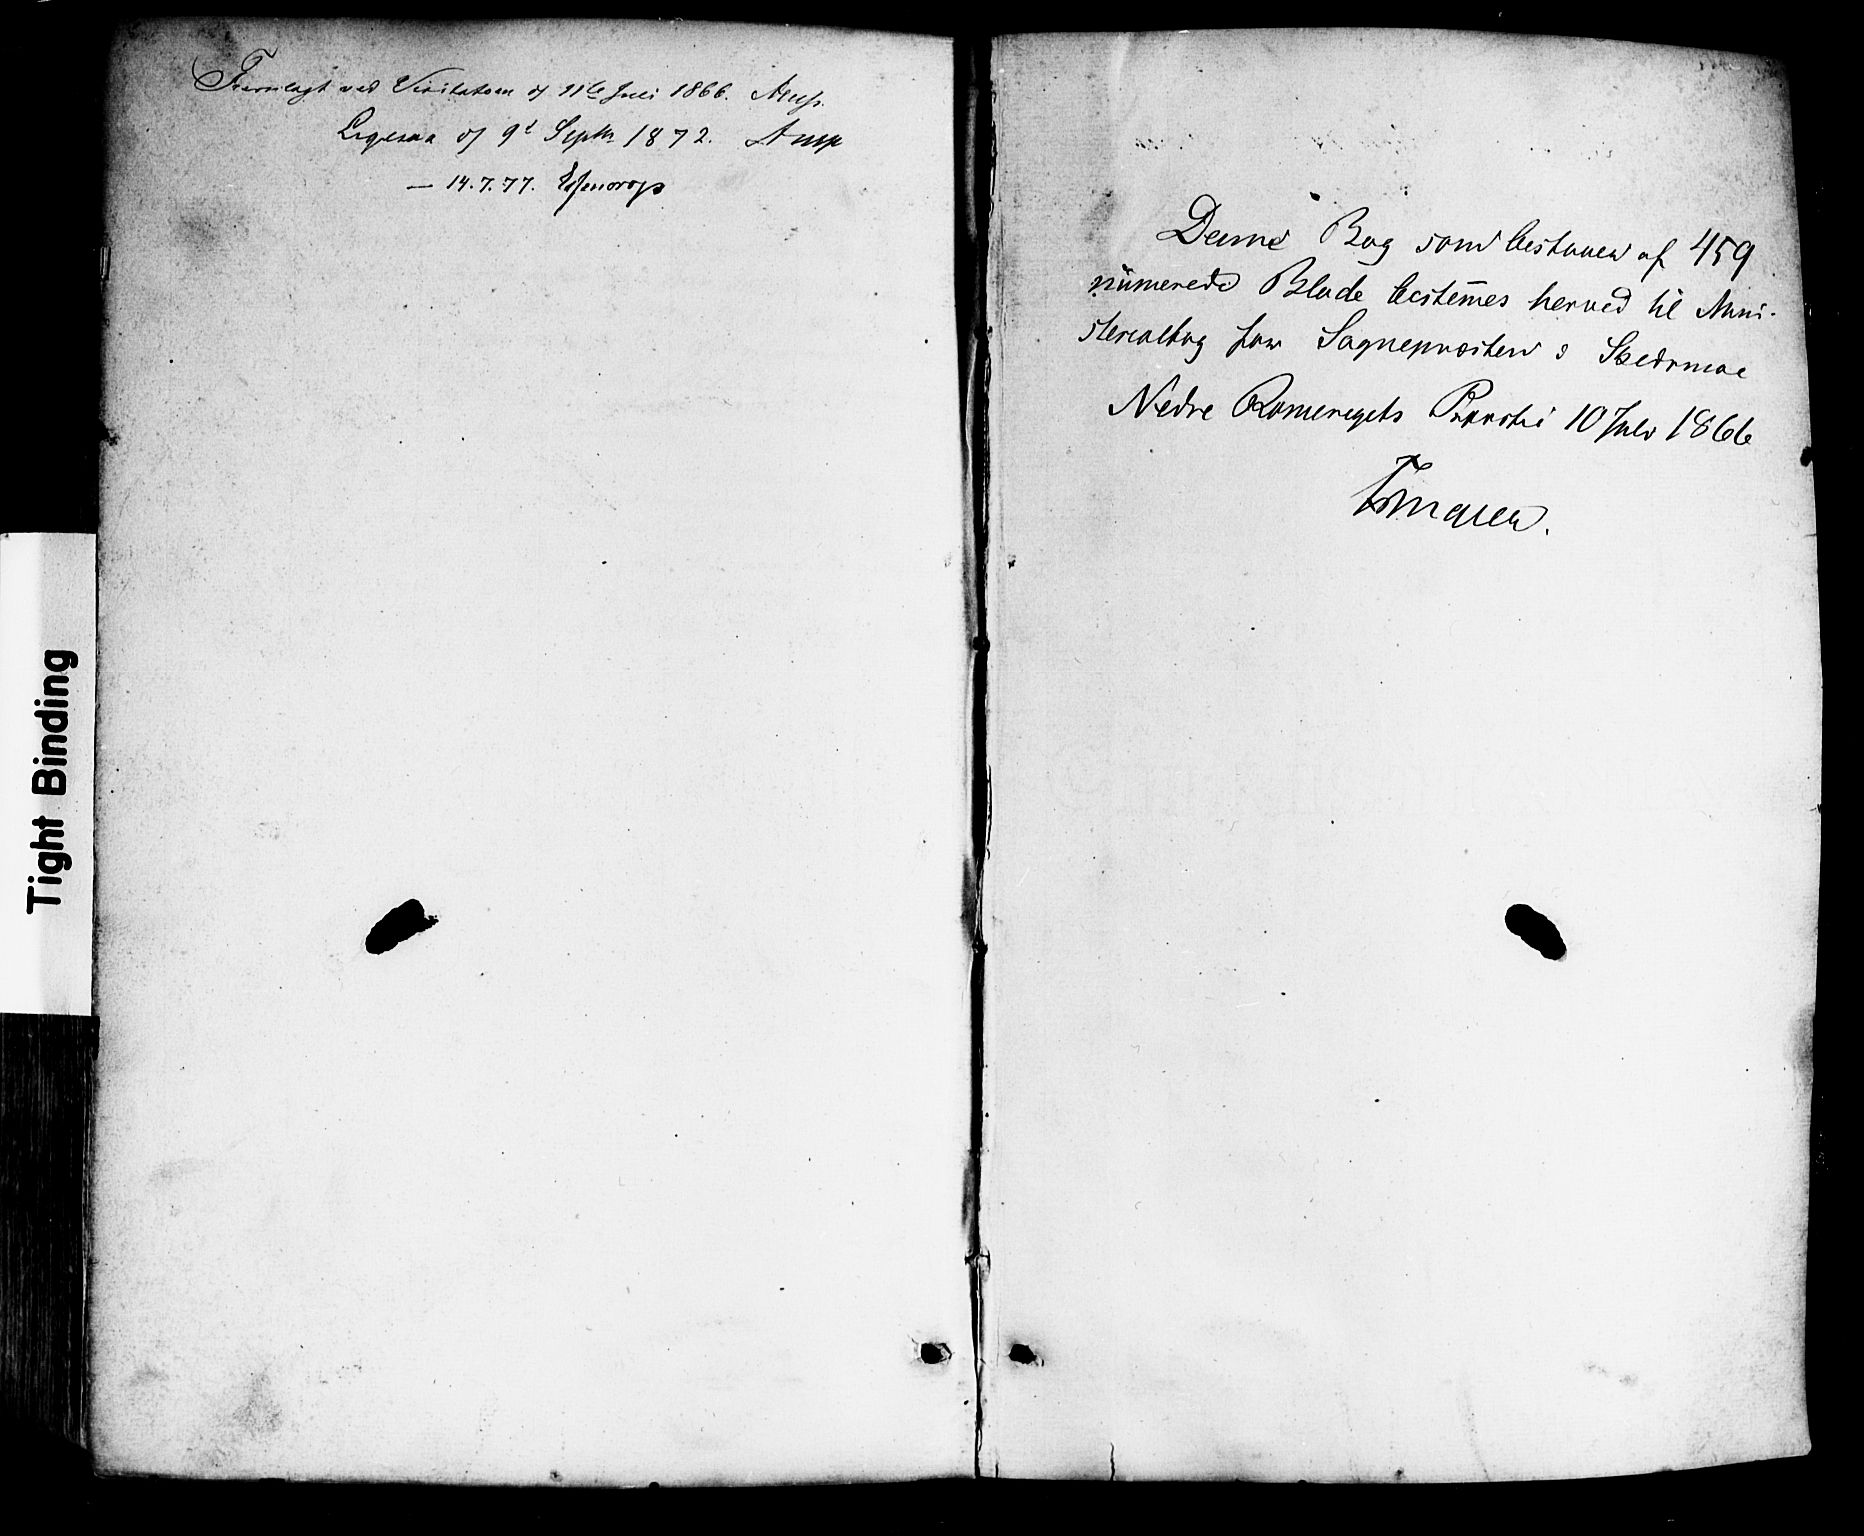 Fremlagt ved Visitatsen d 11te Juli 1866. Arup.
Ligesaa d 9d Septbr 1872. Arup
— 14.7.77. Essendrop
Denne Bog som bestaaer af 459
numerede Blade bestem̄es herved til Mini-
sterialbog for Sognepræsten i Skedsmoe
Nedre Romeriges Provsti 10 Juli 1866
Tight Binding